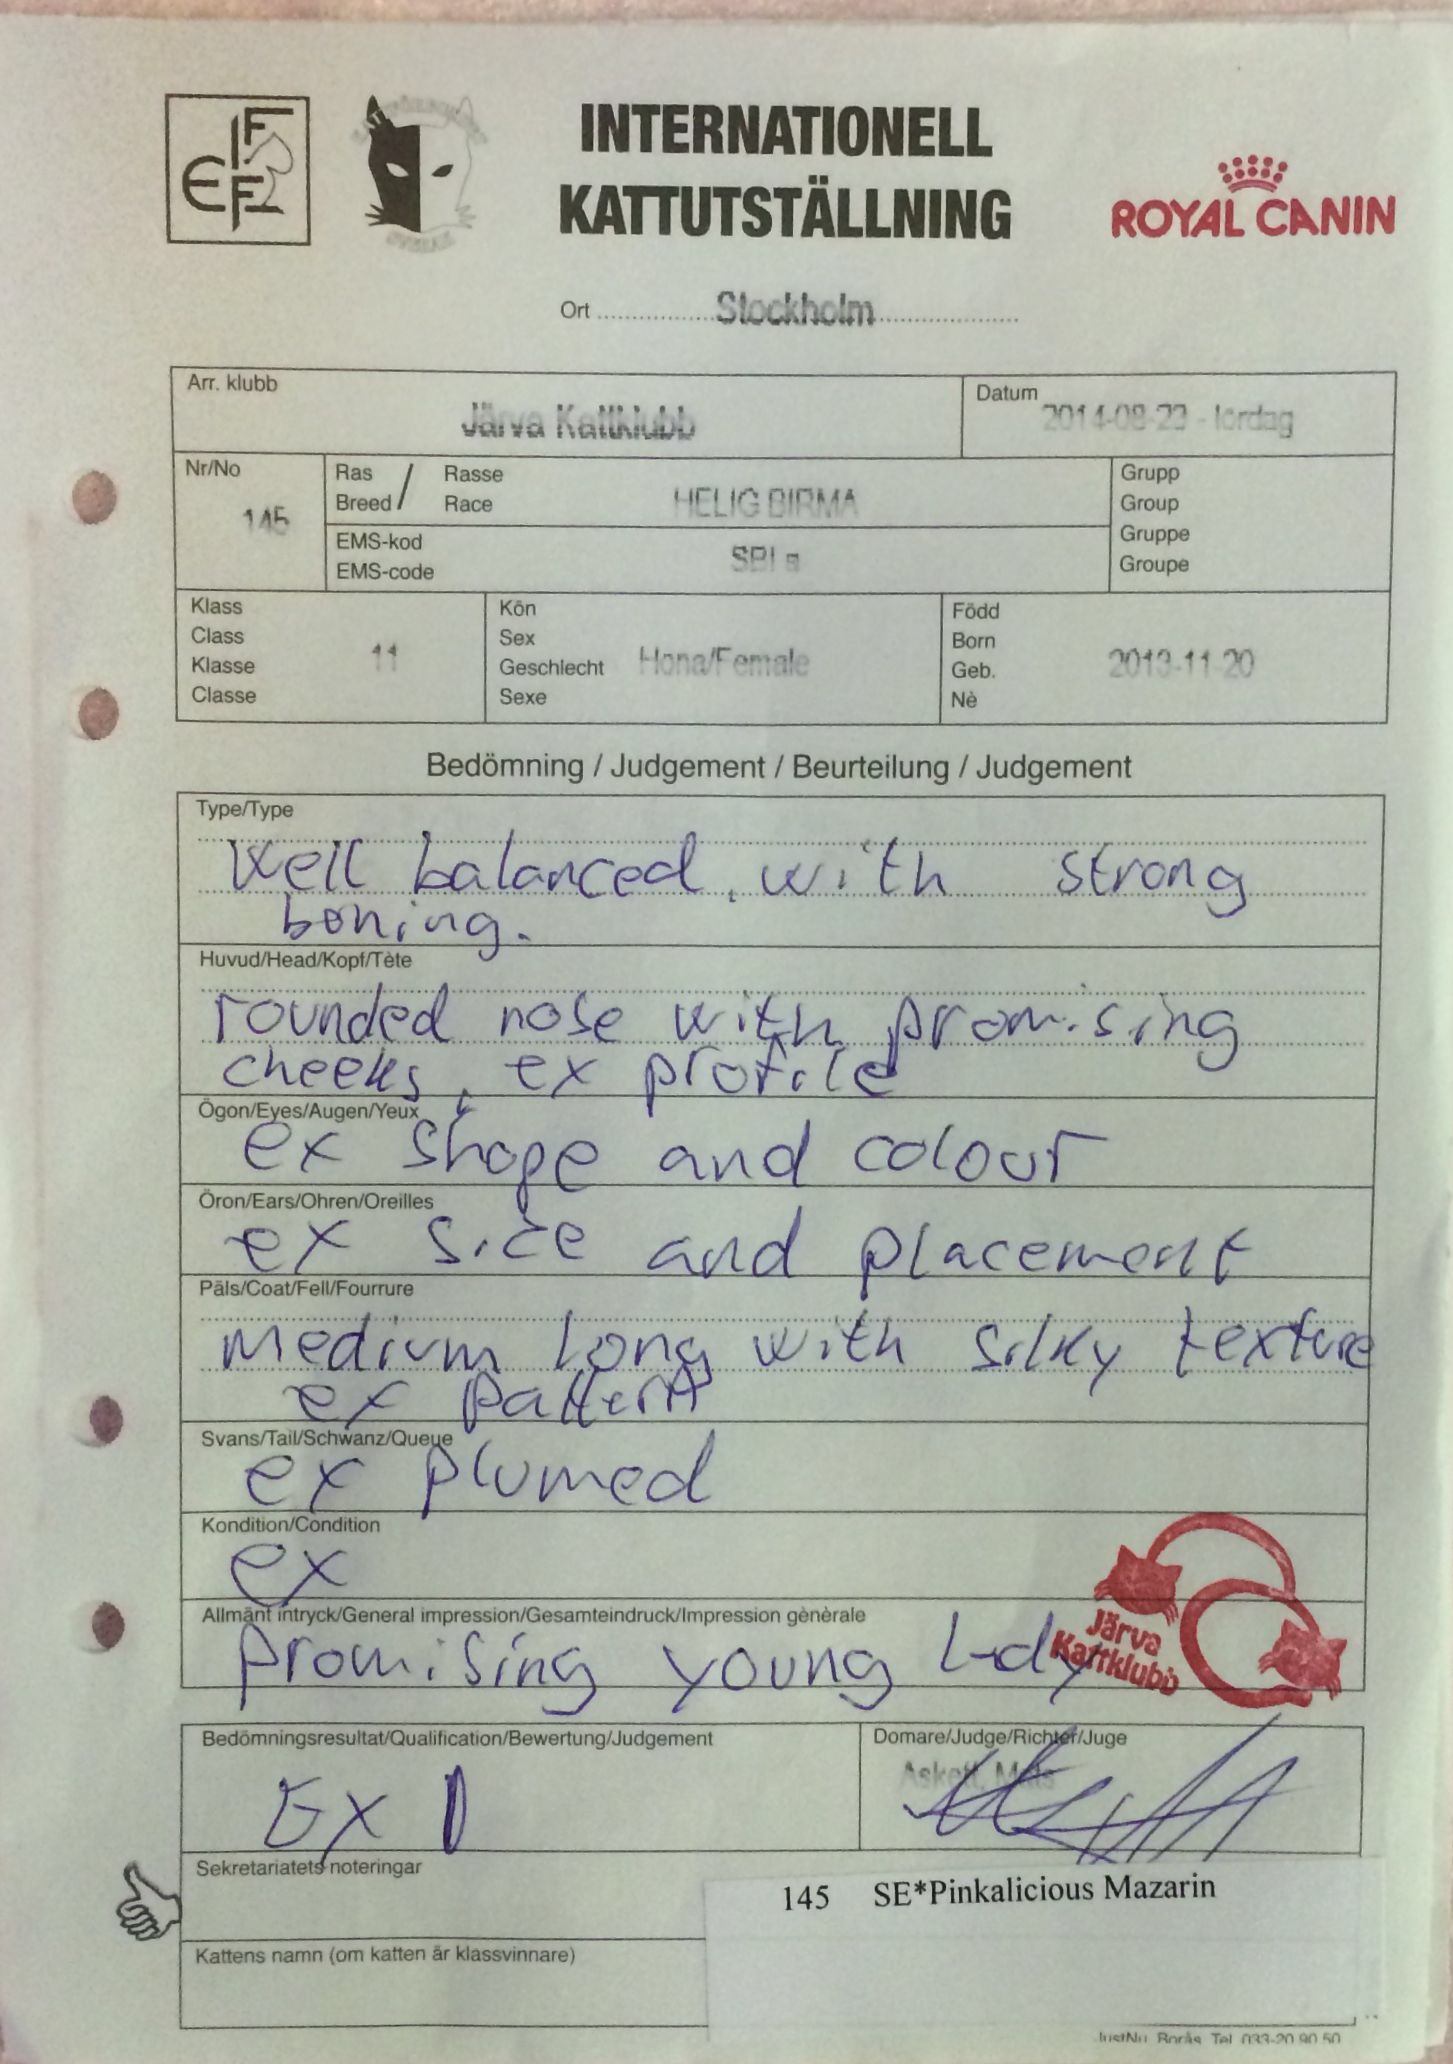 FIFE
INTERNATIONELL
KATTUTSTÄLLNING
ROYAL CANIN
Ort Stockholm
Arr. klubb
Järva Kattklubb
Datum
2014-08-23 - lördag
Nr/No
145
Ras / Rasse
Breed / Race
HELIG BIRMA
EMS-kod
EMS-code
SBI a
Grupp
Group
Gruppe
Groupe
Klass
Class
Klasse
Classe
11
Kön
Sex
Geschlecht
Sexe
Hona/Female
Född
Born
Geb.
Nè
2013-11-20
Bedömning / Judgement / Beurteilung / Judgement
Type/Type
Well balanced, with strong
boning.
Huvud/Head/Kopf/Tète
rounded nose with promising
cheeks, ex profile
Ögon/Eyes/Augen/Yeux
ex shape and colour
Öron/Ears/Ohren/Oreilles
ex size and placement
Päls/Coat/Fell/Fourrure
medium long with silky texture
ex pattern
Svans/Tail/Schwanz/Queue
ex plumed
Kondition/Condition
ex
Allmänt intryck/General impression/Gesamteindruck/Impression gènèrale
promising young Lady
Järva
Kattklubb
Bedömningsresultat/Qualification/Bewertung/Judgement
Ex 1
Domare/Judge/Richter/Juge
Askett, Mats
Sekretariatets noteringar
145 SE*Pinkalicious Mazarin
Kattens namn (om katten är klassvinnare)
JustNu, Borås Tel. 033-20 90 50